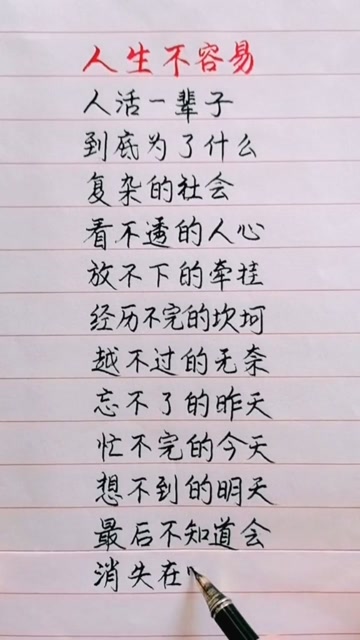 人生不容易
人活一辈子
到底为了什么
复杂的社会
看不透的人心
放不下的牵挂
经历不完的坎坷
越不过的无奈
忘不了的昨天
忙不完的今天
想不到的明天
最后不知道会
消失在